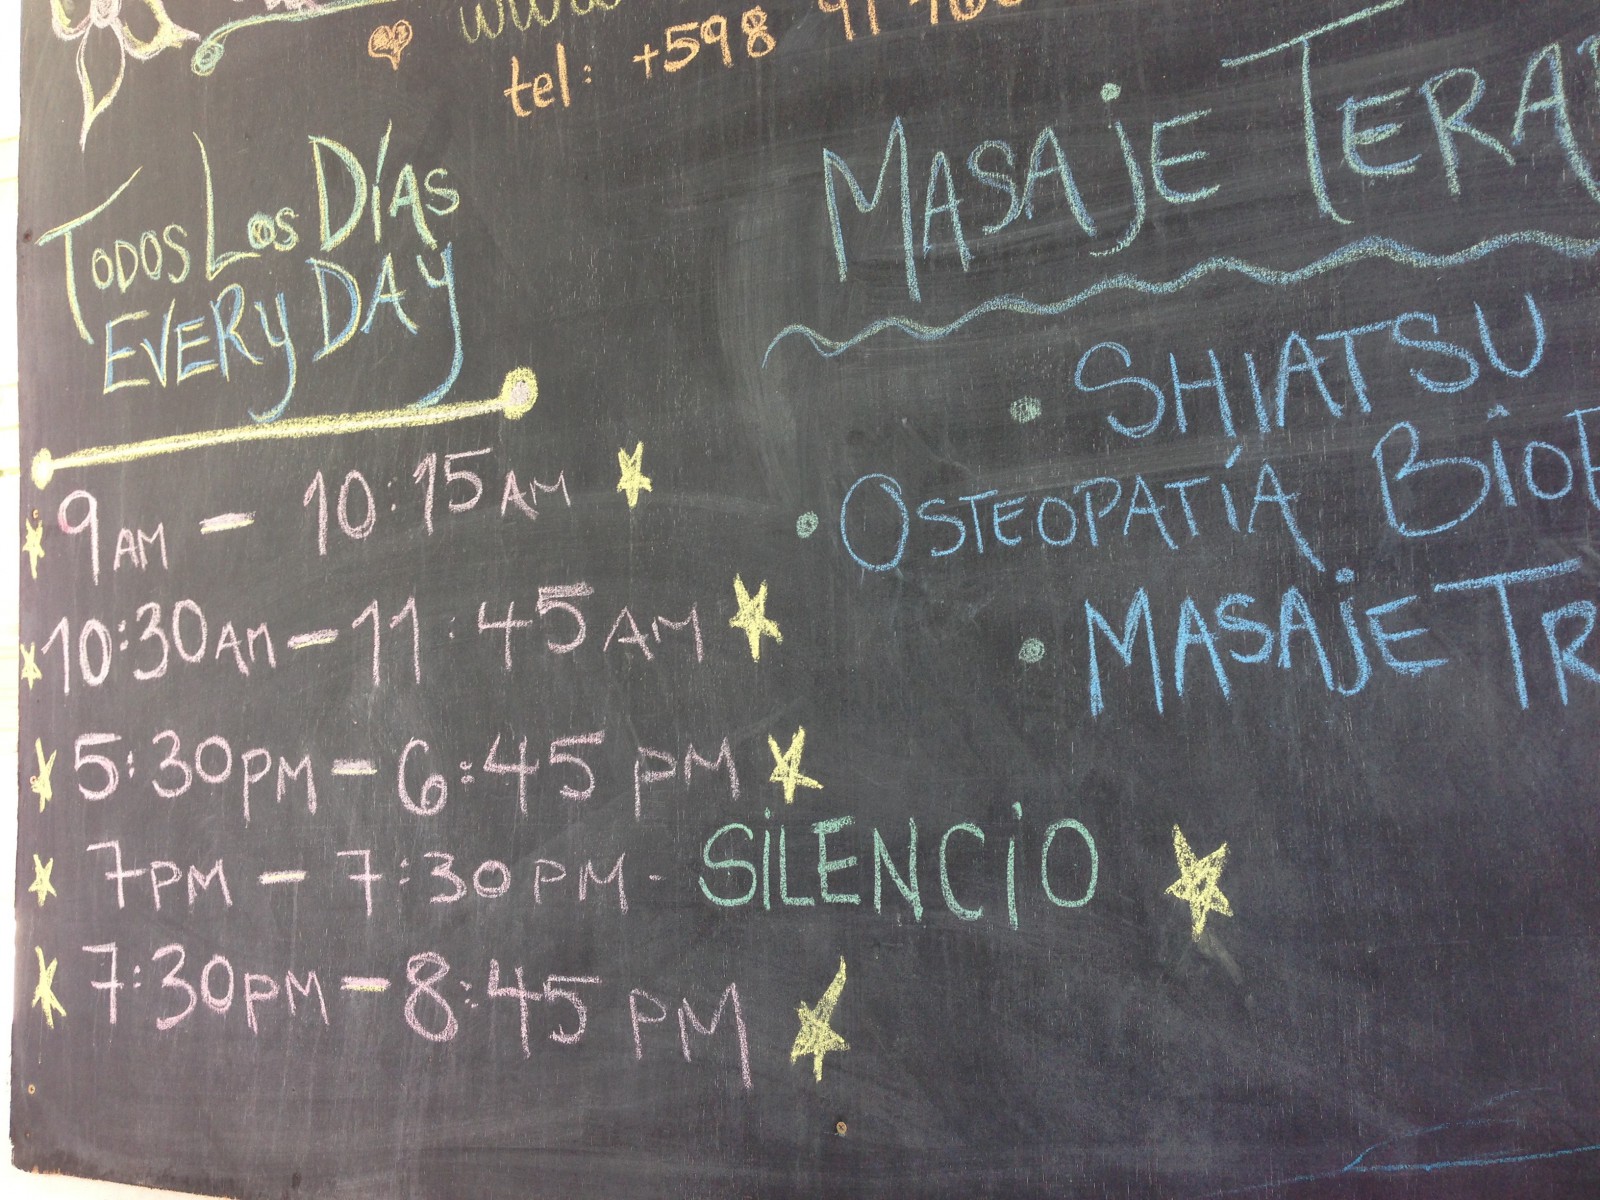 www
tel: +598 91
TODOS LOS DÍAS
EVERY DAY
9AM - 10:15AM
10:30AM - 11:45AM
5:30PM - 6:45 PM
7PM - 7:30PM - SILENCIO
7:30PM - 8:45 PM
MASAJE
• SHIATSU
• OSTEOPATÍA
• MASAJE